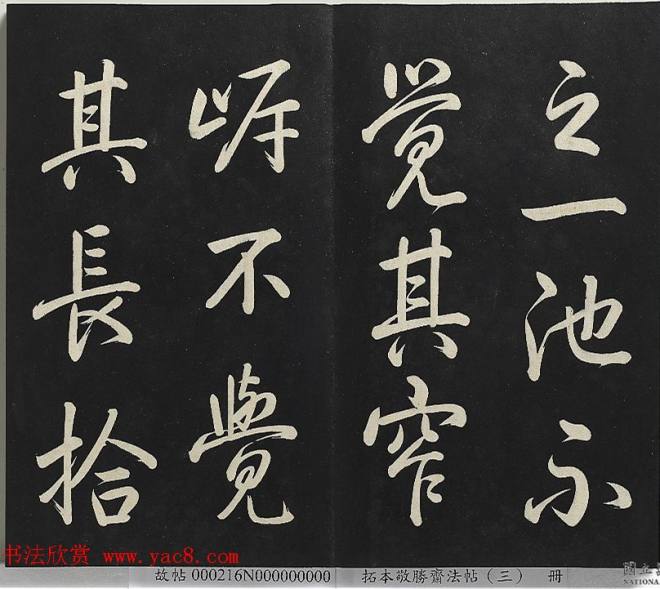 之一池不
覺其窄
岸不覺
其長拾
书法欣赏 www.yac8.com
故帖 000216N000000000 拓本敬勝齋法帖（三） 冊
國立
NATIONA